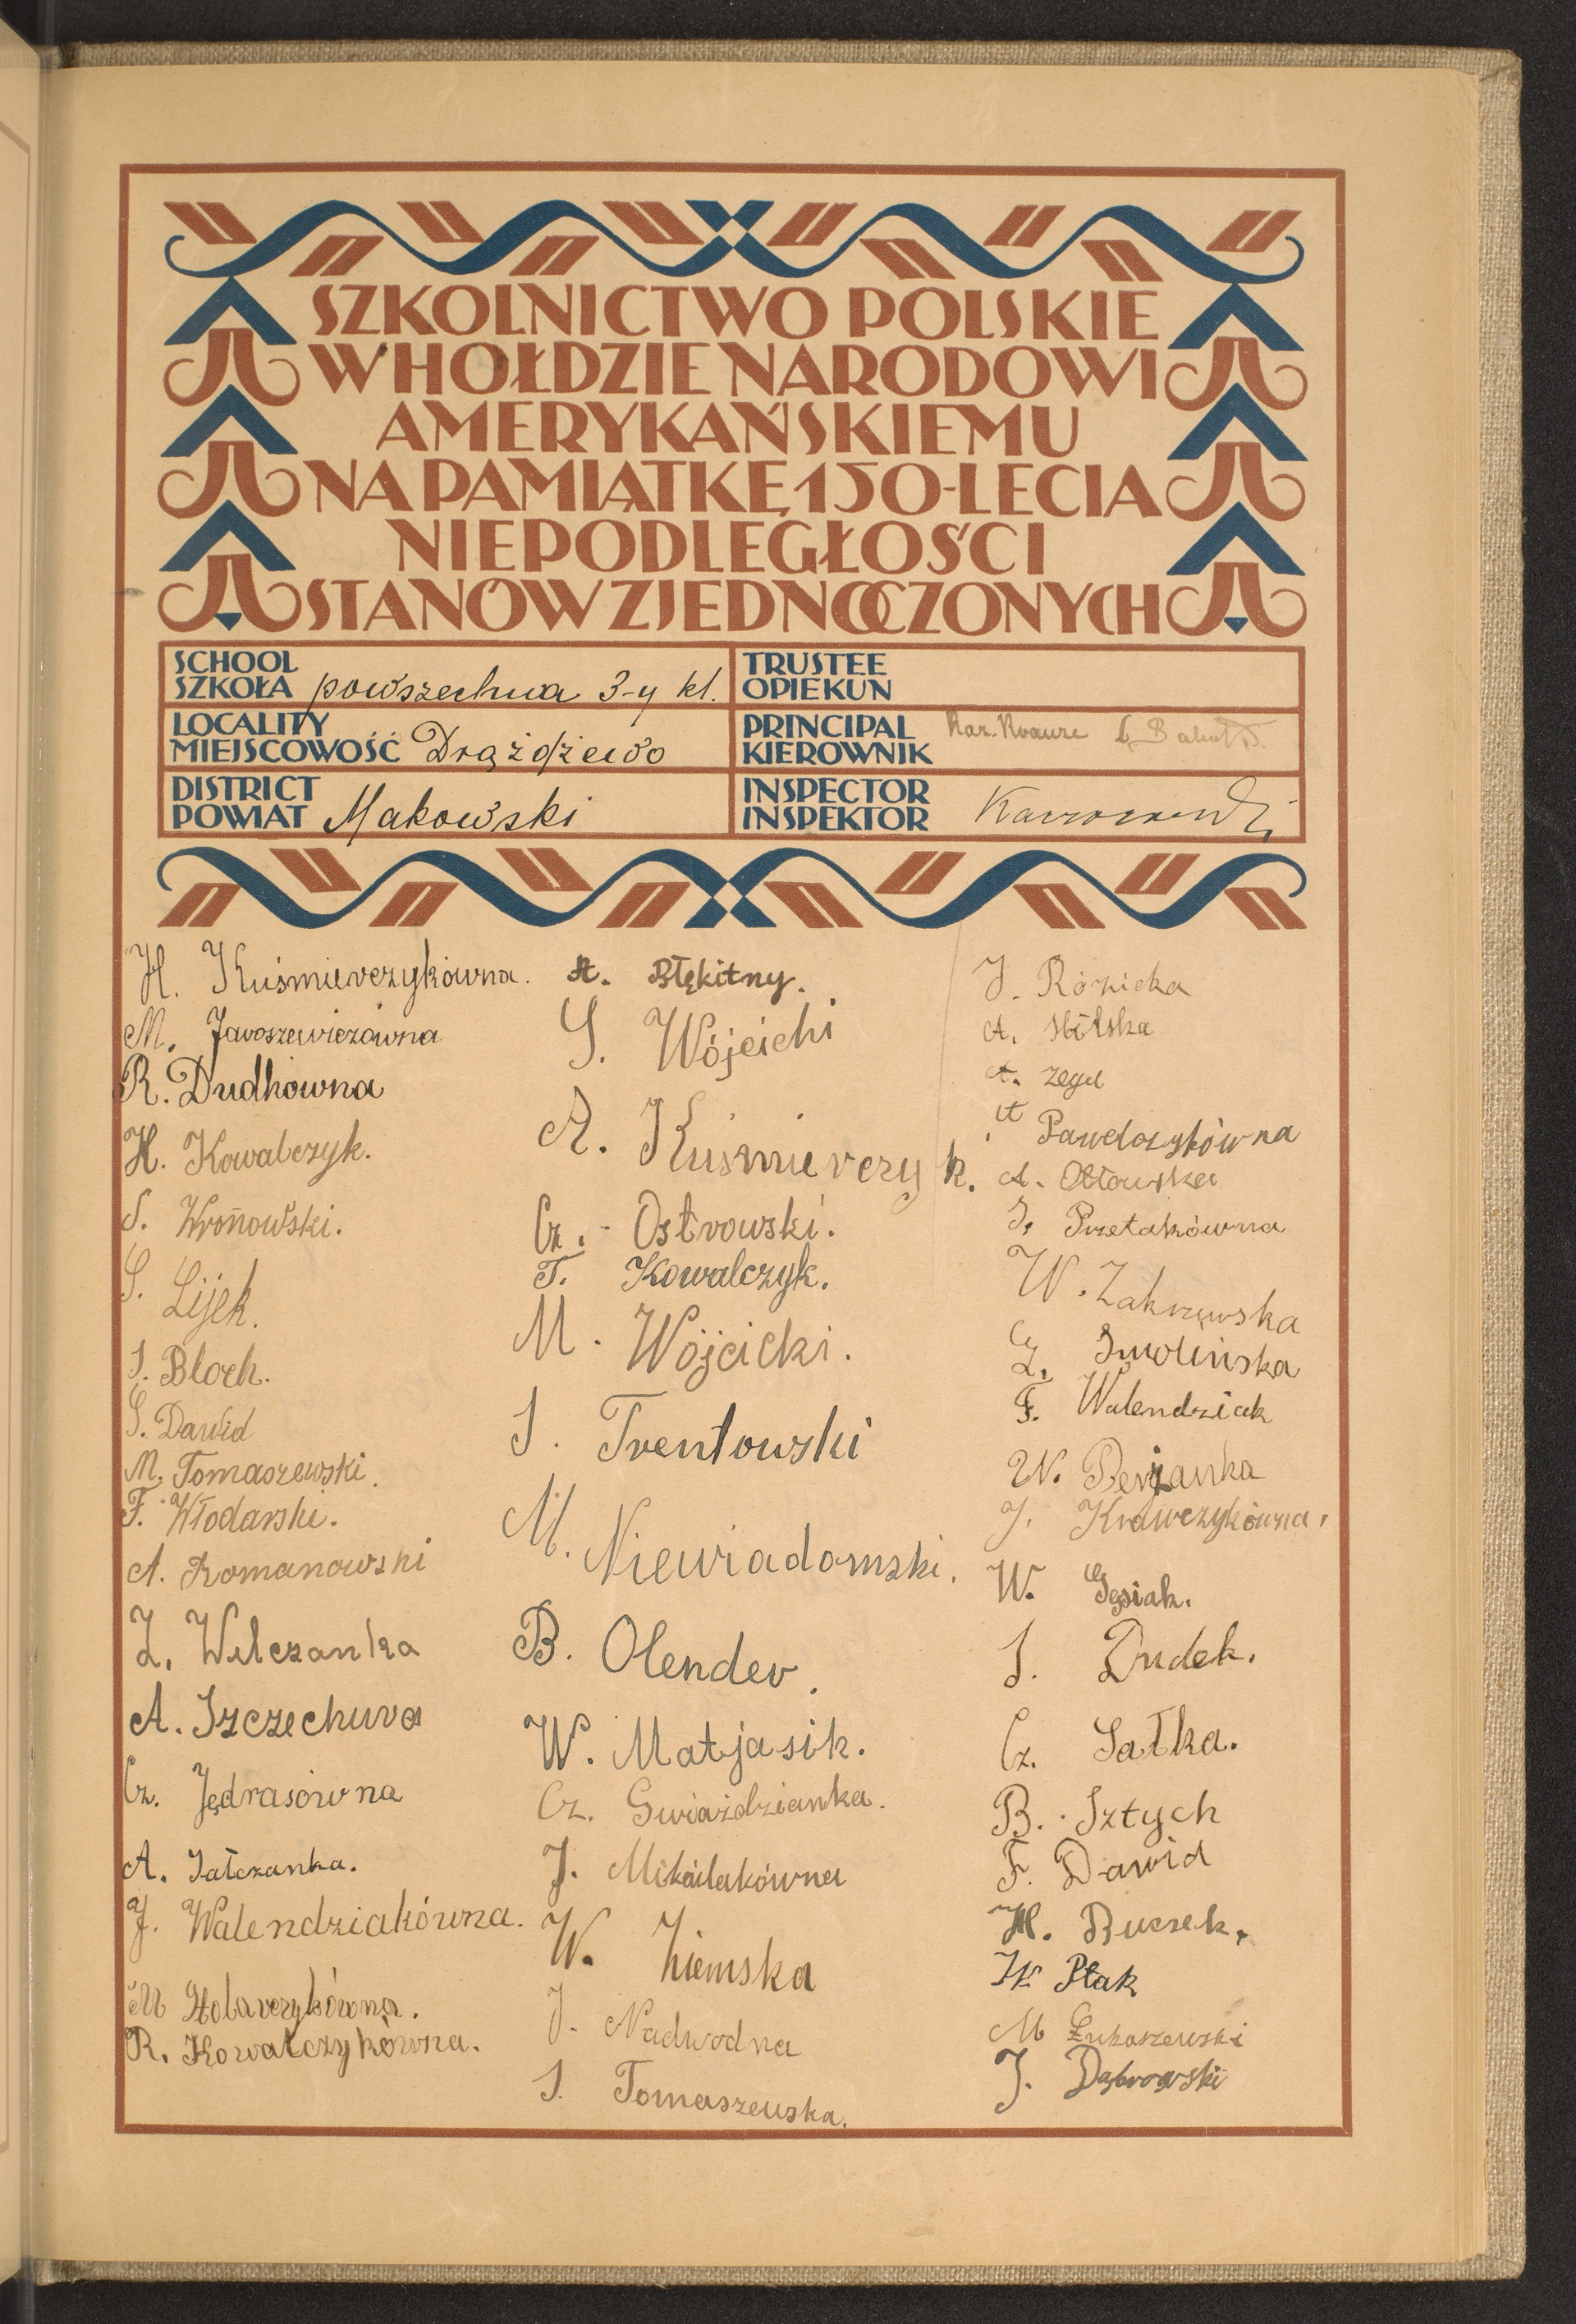 SZKOLNICTWO POLSKIE
W HOŁDZIE NARODOWI
AMERYKAŃSKIEMU
NA PAMIĄTKĘ 150-LECIA
NIEPODLEGŁOŚCI
STANÓW ZJEDNOCZONYCH
SCHOOL
SZKOŁA powszechna 3-y kl.
LOCALITY
MIEJSCOWOŚĆ Drążdżewo
DISTRICT
POWIAT Makowski
TRUSTEE
OPIEKUN
PRINCIPAL
KIEROWNIK Kaz. Krauze
INSPECTOR
INSPEKTOR
H. Kuśmierczykówna.
M. Jaroszewiczówna
R. Dudkówna
H. Kowalczyk.
S. Wronowski.
S. Lijek.
S. Bloch.
S. Dawid
M. Tomaszewski.
F. Włodarski.
A. Romanowski
Z. Wilczanka
A. Szczechura
Cz. Jędrasówna
A. Sałczanka.
J. Walendziakówna.
M Kolarczykówna.
R. Kowalczykówna.
A. Błękitny.
S. Wójcicki
A. Kuśmierczyk.
Cz. Ostrowski.
T. Kowalczyk.
M. Wójcicki.
S. Trentowski
M. Niewiadomski.
B. Olender.
W. Matjasik.
Cz. Gwiaździanka.
J. Mikailakówna
W. Ziemska
J. Nadwodna
S. Tomaszewska.
J. Rózicka
A. Milska
A. Zega
A Pawelczykówna
A. Obłowska
S. Przetakówna
W. Zakrzewska
Cz. Smolińska
F. Walendziak
W. Berżanka
J. Krawczykówna.
W. Gęsiak.
S. Dudek.
Cz. Sałka.
B. Sztych
F. Dawid
H. Ruszek.
W Ptak
M Łukaszewski
J. Dąbrowski